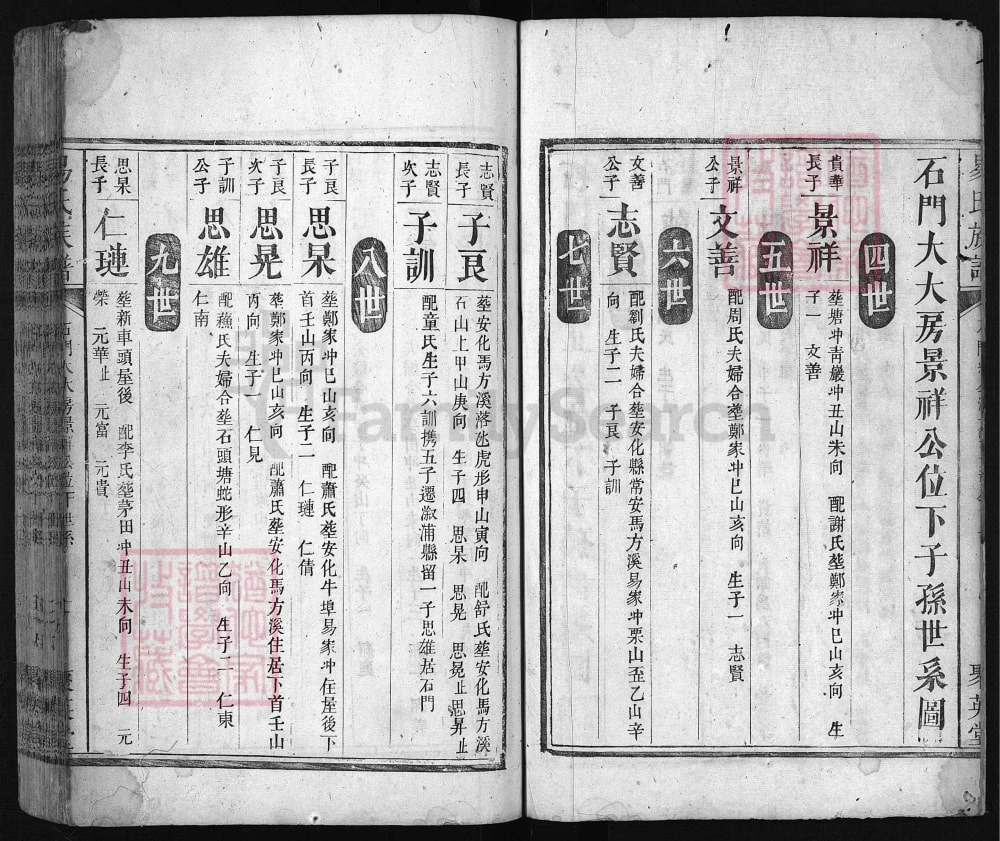 石門大大房景祥公位下子孫世系圖
四世
貴華
長子
景祥
塟塘冲青嚴冲丑山未向 配謝氏塟鄭家冲巳山亥向 生
子一 文善
五世
景祥
公子
文善
配周氏夫婦合塟鄭家冲巳山亥向 生子一 志賢
六世
文善
公子
志賢
配劉氏夫婦合塟安化縣常安馬方溪易家冲栗山坵乙山辛
向 生子二 子良 子訓
七世
志賢
長子
子良
塟安化馬方溪落氹虎形申山寅向 配舒氏塟安化馬方溪
石山上甲山庚向 生子四 思杲 思晃 思冕止思昇止
志賢
次子
子訓
配童氏生子六訓携五子遷溆浦縣留一子思雄居石門
八世
子良
長子
思杲
塟鄭家冲巳山亥向 配蕭氏塟安化牛埠易家冲在屋後下
首壬山丙向 生子二 仁璉 仁倩
子良
次子
思晃
塟鄭家冲巳山亥向 配蕭氏塟安化馬方溪住居下首壬山
丙向 生子一 仁見
子訓
公子
思雄
配蘓氏夫婦合塟石頭塘蛇形辛山乙向 生子二 仁東
仁南
九世
思杲
長子
仁璉
塟新車頭屋後 配李氏塟茅田冲丑山未向 生子四 元
榮 元華止 元富 元貴
易氏族譜
聚英堂
FamilySearch